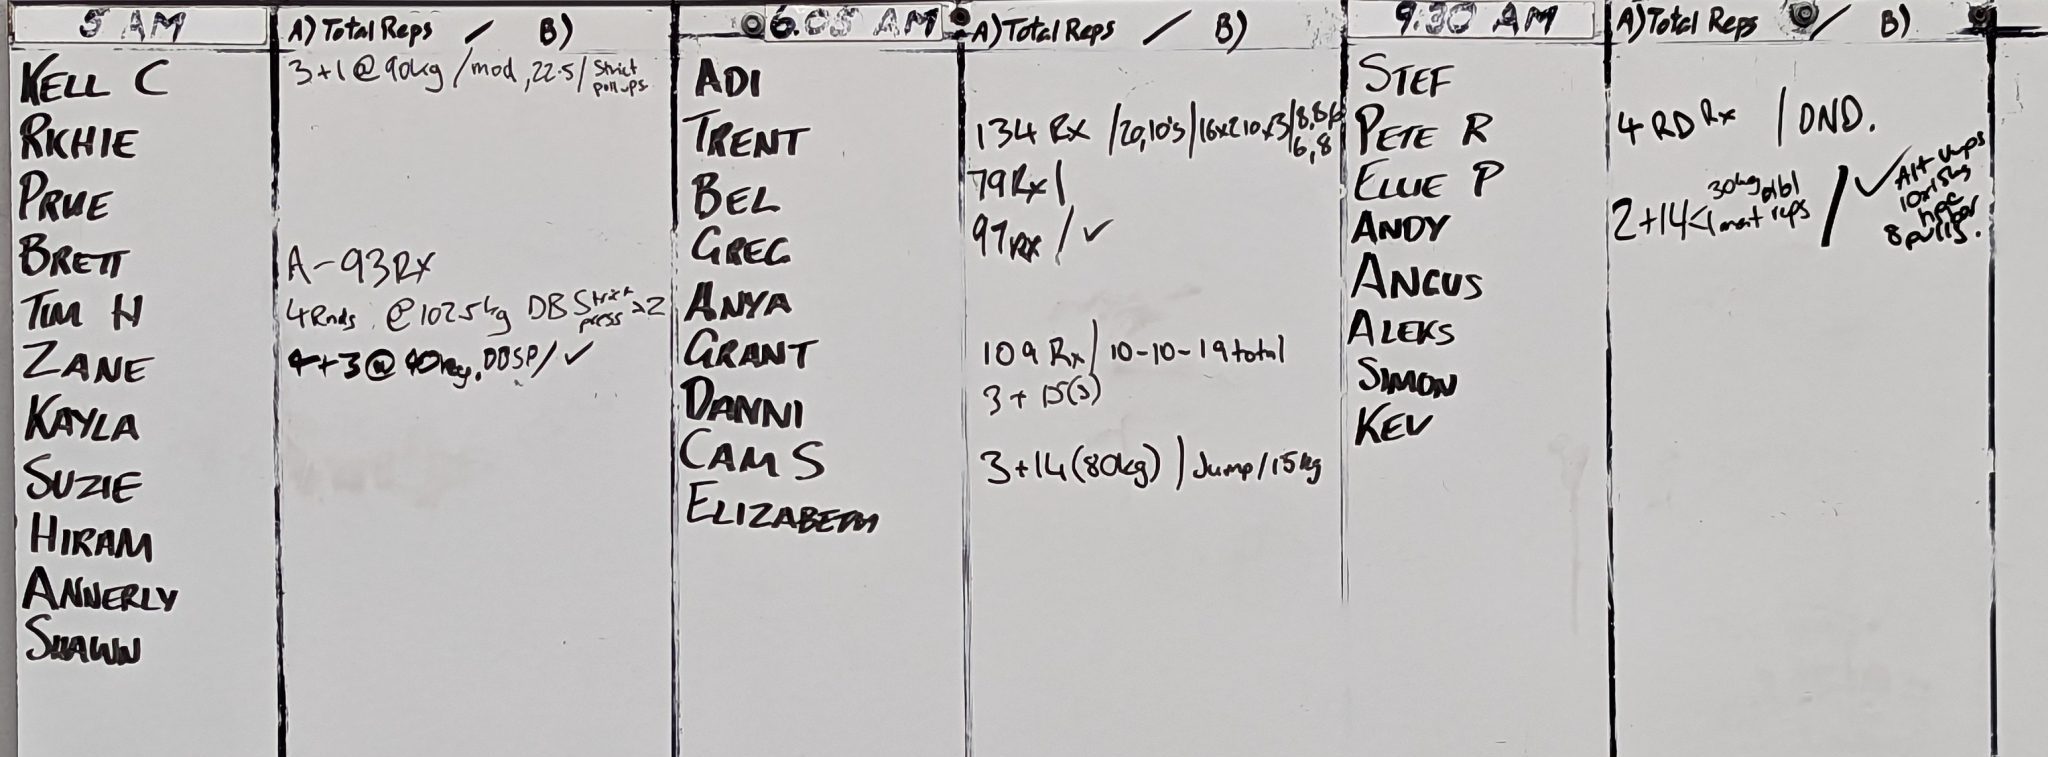 5 AM
A) Total Reps / B)
KELL C 3+1 @ 90kg / mod, 22.5 / Strict pullups
RICHIE
PRUE
BRETT A-93 Rx
TIM H 4 Rnds @ 102.5kg DB Strict press
ZANE 4+3 @ 90kg, DBSP / ✓
KAYLA
SUZIE
HIRAM
ANNERLY
SHAWN
6.05 AM
A) Total Reps / B)
ADI
TRENT 134 Rx / 20,10's / 16x2 10x3 / 8,8,6 6,8
BEL 79 Rx /
GREG 97 Rx / ✓
ANYA
GRANT 109 Rx / 10-10-19 total
DANNI 3+15(s)
CAM S 3+14 (80kg) / Jump/15kg
ELIZABETH
9:30 AM
A) Total Reps / B)
STEF
PETE R 4 RD Rx / DND.
ELLIE P
ANDY 2+14 30kg mat reps / ✓ Alt 10x15kg 8 pulls.
ANGUS
ALEKS
SIMON
KEV